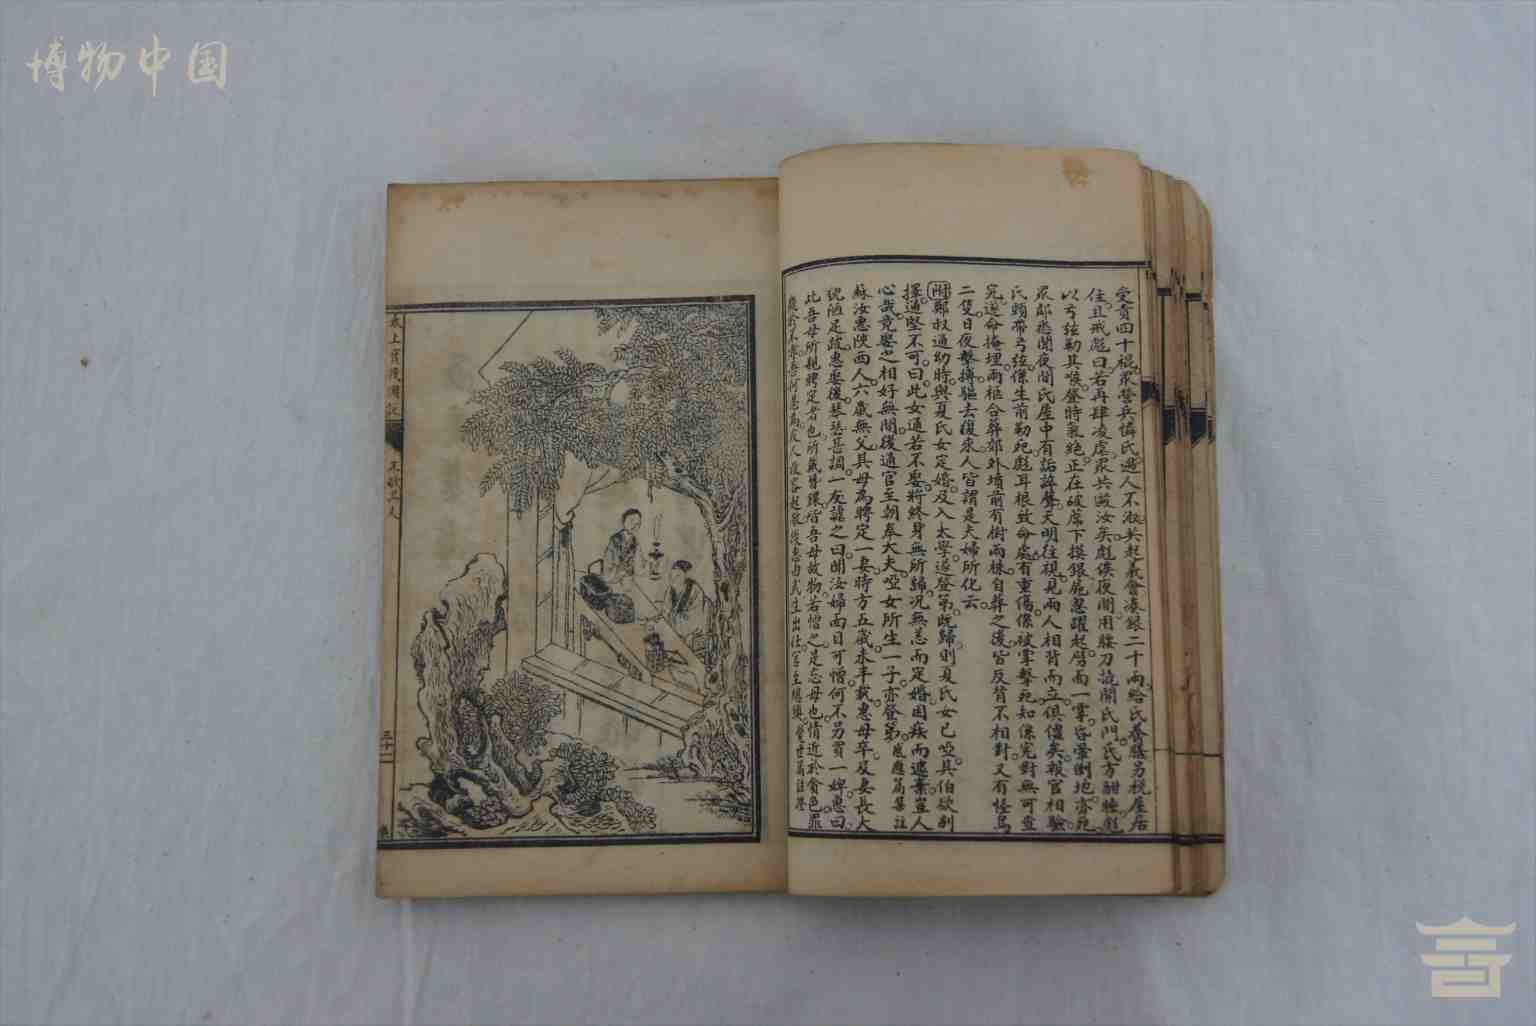 博物中国
受賞四十棍衆營兵憐氏遇人不淑共起義會湊銀二十兩給氏養膳另税屋居
住且戒彪曰若再肆凌虐衆共毆汝矣彪俟夜間用腰刀詭開氏門氏方酣睡彪
以弓弦勒其喉登時氣絶正在破席下摸銀屍忽躍起劈面一掌昏暈倒地亦死
衆鄰悉聞夜間氏屋中有詬誶聲天明往視見兩人相背而立俱僵矣報官相驗
氏頸帶弓弦係生前勒死彪耳根致命處有重傷係被掌擊死知係冤對無可查
究遂命掩埋兩柩合葬郊外墳前有樹兩株自葬之後皆反背不相對又有怪鳥
二隻日夜擊搏驅去復來人皆謂是夫婦所化云
附鄭叔通幼時與夏氏女定婚及入太學遂登第既歸則夏氏女已啞其伯欲别
擇通堅不可曰此女通若不娶將終身無所歸況無恙而定婚因疾而遽棄豈人
心哉竟娶之相好無間後通官至朝奉大夫啞女所生一子亦登第感應篇集註
蘇汝惠陝西人六歲無父其母為聘定一妻時方五歲未半載惠母卒及妻長大
貌陋足疏惠娶後琴瑟甚調一友謔之曰聞汝婦面目可憎何不另買一婢惠曰
此吾母所親聘定者也所氣簪鐶皆吾母故物若憎之是忘母也情近於貪色罪
太上寶筏圖說
三十一